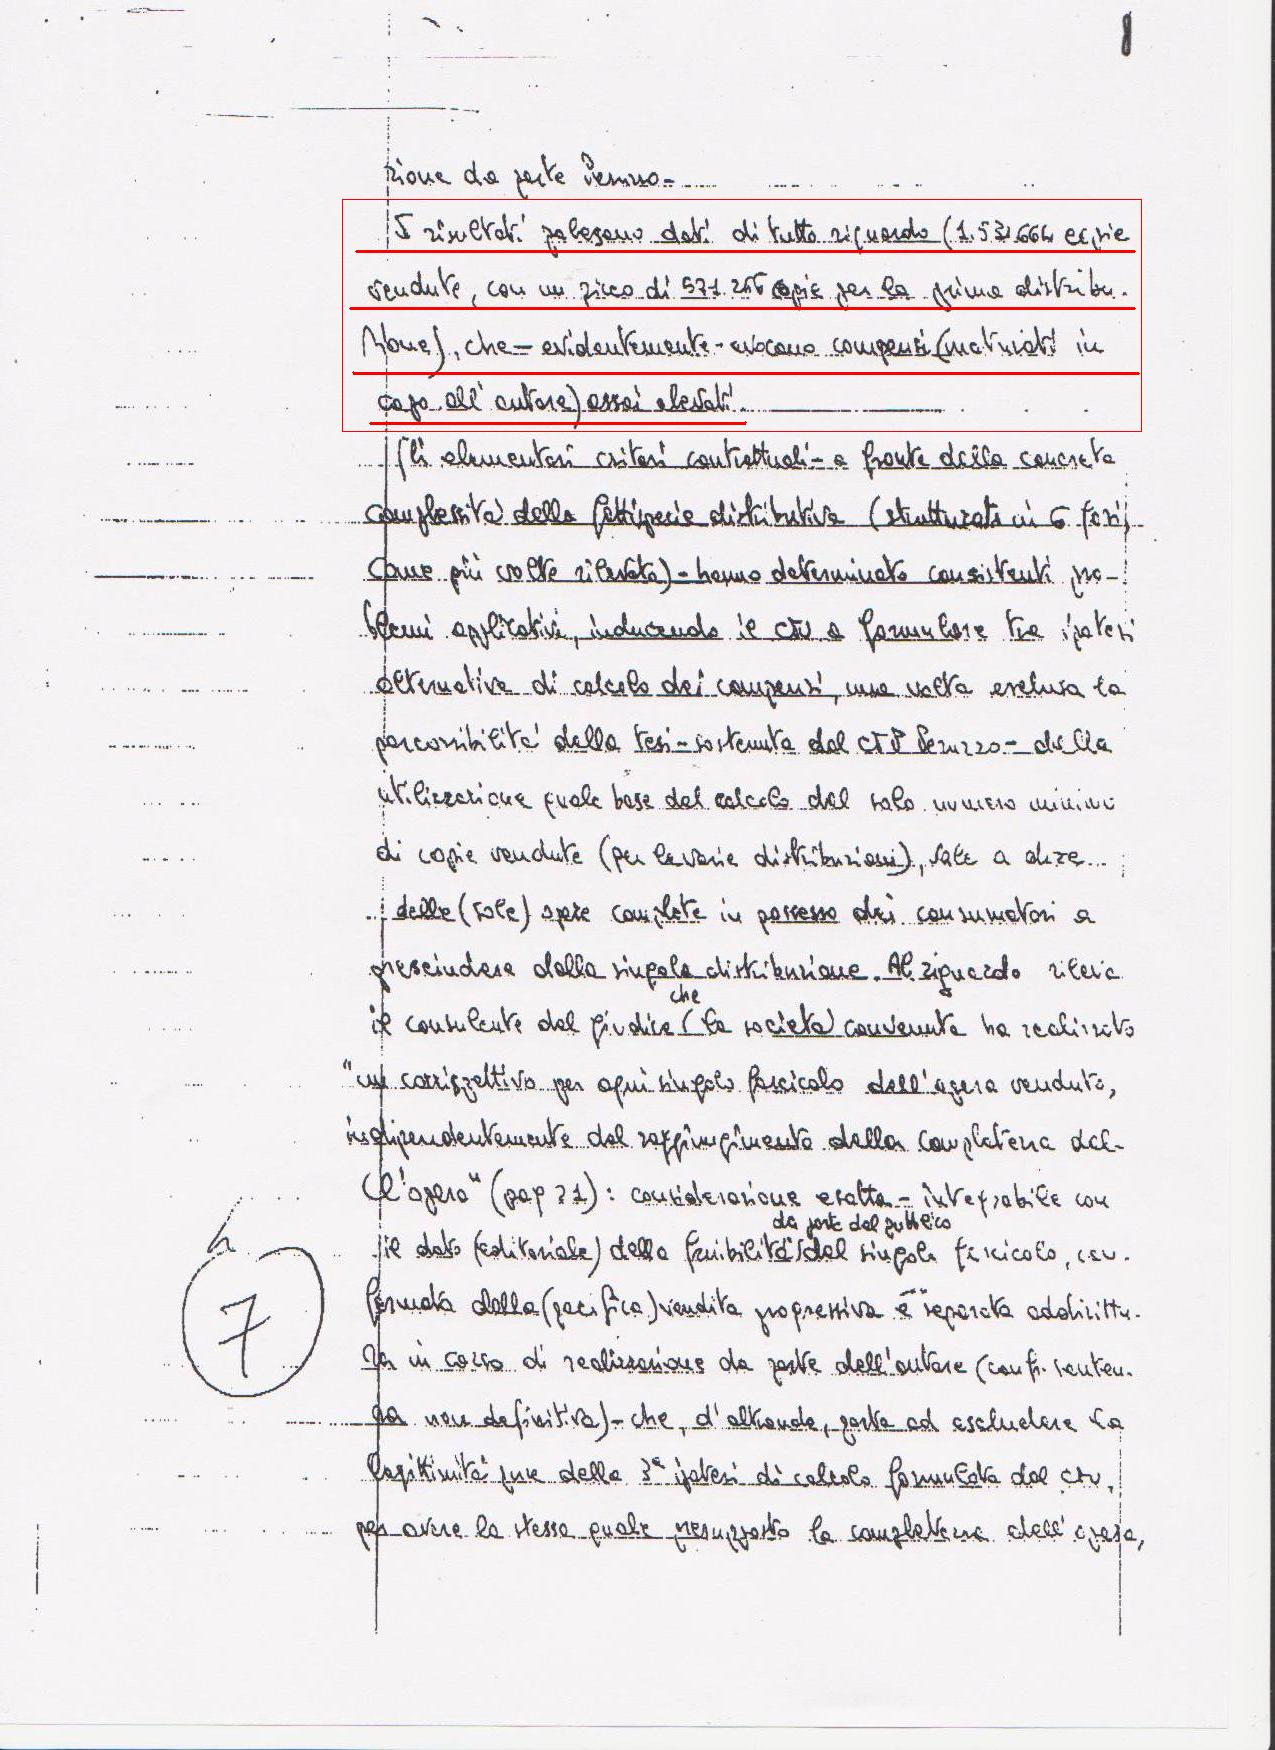 8
zione da parte Peruzzo-
I risultati palesano dati di tutto riguardo (1.531.664 copie
vendute, con un picco di 571.255 copie per la prima distribu-
zione), che - evidentemente - evocano compensi (maturati in
capo all'autore) assai elevati.
Gli elementari criteri contrattuali - a fronte della concreta
complessità della fattispecie distributiva (strutturata in 6 fasi,
come più volte rilevato) - hanno determinato consistenti pro-
blemi applicativi, inducendo il CTU a formulare tre ipotesi
alternative di calcolo dei compensi, una volta esclusa la
percorribilità della tesi - sostenuta dal CTP Peruzzo - della
utilizzazione quale base del calcolo del solo numero minimo
di copie vendute (per le varie distribuzioni), vale a dire
delle (sole) opere complete in possesso dei consumatori a
prescindere dalla singola distribuzione. Al riguardo rileva
il consulente del giudice che (la società) convenuta ha realizzato
"un corrispettivo per ogni singolo fascicolo dell'opera venduto,
indipendentemente dal raggiungimento della completezza del-
l'opera" (pag 21): considerazione esatta - integrabile con
il dato (editoriale) della fruibilità da parte del pubblico del singolo fascicolo, con-
fermata dalla (pacifica) vendita progressiva e separata addirittu-
ra in corso di realizzazione da parte dell'autore (confr. senten-
za non definitiva) - che, d'altronde, porta ad escludere la
legittimità pure della 3ª ipotesi di calcolo formulata dal CTU,
per avere la stessa quale presupposto la completezza dell'opera,
7